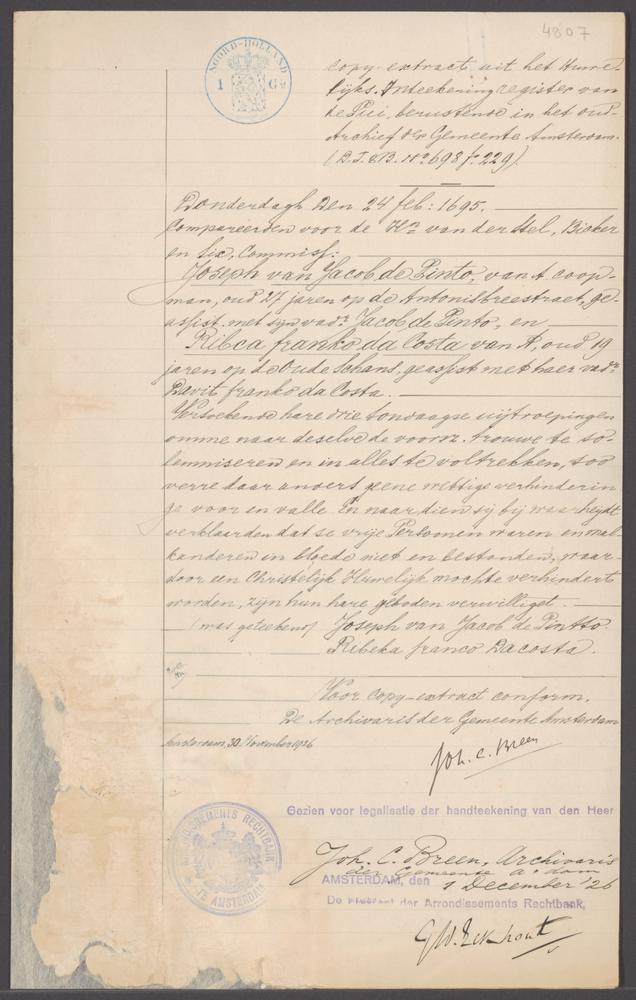 4807
NOORD-HOLLAND
1 Gn
Copy-extract uit het Huwe-
lijks. Inteekening register van
de Pui, berustende in het oud-
Archief der Gemeente Amsterdam.
(D.T.&B. No 698 fo 229)
Donderdagh den 24 feb: 1695.
Compareerden voor de Hn van der Stel, Bicker
en Sic, Commiss:
Joseph van Jacob de Pinto, van A. coop-
man, oud 27 jaren op de Antonibreestraet, ge-
assist. met sijn vadr Jacob de Pinto, en
Ribca franko da Costa van A, oud 19
jaren op de Oude Schans, geassist met haer vadr
Davit franko da Costa.
Versoekende hare drie sondaagse uijtroepingen
omme naar deselve de voorn. trouwe te so-
lemniseren en in alles te voltrekken, soo
verre daar anders geene wettige verhinderin-
ge voor en valle. En naar dien sij bij waarheijt
verklaarden dat se vrije Persomen waren en mal-
kanderen in bloede niet en bestonden, waar-
door een Christelijk Huwelijk mochte verhindert
worden, zijn hun hare geboden verwilliget.
(was geteekend) Joseph van Jacob de Pintto.
Ribeka franco Dacosta.
Voor Copy-extract conform,
De Archivaris der Gemeente Amsterdam
Amsterdam, 30 November 1926
Joh. C. Breen
Gezien voor legalisatie der handteekening van den Heer
Joh. C. Breen, Archivaris
der Gemeente A'dam
AMSTERDAM, den 1 December '26
De President der Arrondissements Rechtbank,
ARRONDISSEMENTS RECHTBANK
TE AMSTERDAM